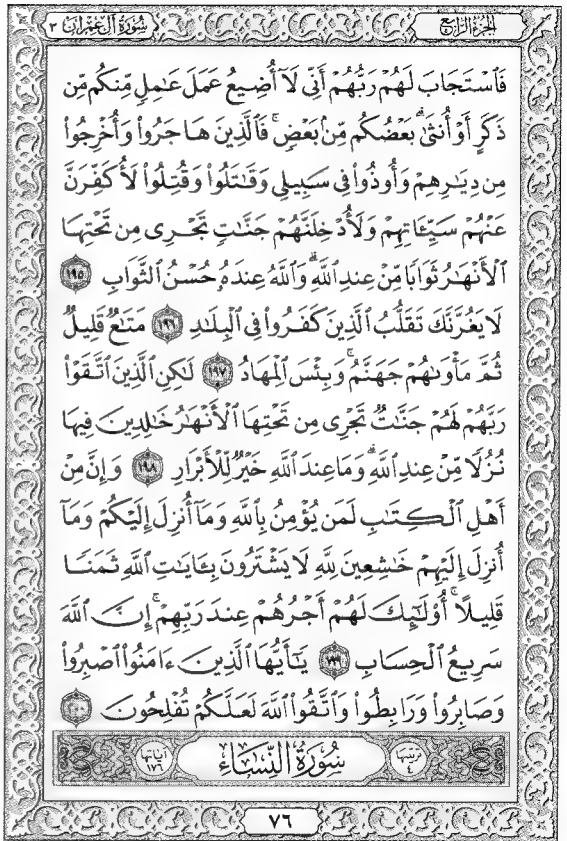 الجزء الرابع
سورة آل عمران ٣
فَٱسْتَجَابَ لَهُمْ رَبُّهُمْ أَنِّى لَآ أُضِيعُ عَمَلَ عَٰمِلٍ مِّنكُم مِّن
ذَكَرٍ أَوْ أُنثَىٰ ۖ بَعْضُكُم مِّنۢ بَعْضٍ ۖ فَٱلَّذِينَ هَاجَرُوا۟ وَأُخْرِجُوا۟
مِن دِيَٰرِهِمْ وَأُوذُوا۟ فِى سَبِيلِى وَقَٰتَلُوا۟ وَقُتِلُوا۟ لَأُكَفِّرَنَّ
عَنْهُمْ سَيِّـَٔاتِهِمْ وَلَأُدْخِلَنَّهُمْ جَنَّٰتٍ تَجْرِى مِن تَحْتِهَا
ٱلْأَنْهَٰرُ ثَوَابًا مِّنْ عِندِ ٱللَّهِ ۗ وَٱللَّهُ عِندَهُۥ حُسْنُ ٱلثَّوَابِ ١٩٥
لَا يَغُرَّنَّكَ تَقَلُّبُ ٱلَّذِينَ كَفَرُوا۟ فِى ٱلْبِلَٰدِ ١٩٦ مَتَٰعٌ قَلِيلٌ
ثُمَّ مَأْوَىٰهُمْ جَهَنَّمُ ۚ وَبِئْسَ ٱلْمِهَادُ ١٩٧ لَٰكِنِ ٱلَّذِينَ ٱتَّقَوْا۟
رَبَّهُمْ لَهُمْ جَنَّٰتٌ تَجْرِى مِن تَحْتِهَا ٱلْأَنْهَٰرُ خَٰلِدِينَ فِيهَا
نُزُلًا مِّنْ عِندِ ٱللَّهِ ۗ وَمَا عِندَ ٱللَّهِ خَيْرٌ لِّلْأَبْرَارِ ١٩٨ وَإِنَّ مِنْ
أَهْلِ ٱلْكِتَٰبِ لَمَن يُؤْمِنُ بِٱللَّهِ وَمَآ أُنزِلَ إِلَيْكُمْ وَمَآ
أُنزِلَ إِلَيْهِمْ خَٰشِعِينَ لِلَّهِ لَا يَشْتَرُونَ بِـَٔايَٰتِ ٱللَّهِ ثَمَنًا
قَلِيلًا ۗ أُو۟لَٰٓئِكَ لَهُمْ أَجْرُهُمْ عِندَ رَبِّهِمْ ۗ إِنَّ ٱللَّهَ
سَرِيعُ ٱلْحِسَابِ ١٩٩ يَٰٓأَيُّهَا ٱلَّذِينَ ءَامَنُوا۟ ٱصْبِرُوا۟
وَصَابِرُوا۟ وَرَابِطُوا۟ وَٱتَّقُوا۟ ٱللَّهَ لَعَلَّكُمْ تُفْلِحُونَ ٢٠٠
ترتيبها ٤ سُورَةُ النِّسَاءِ آياتها ١٧٦
٧٦